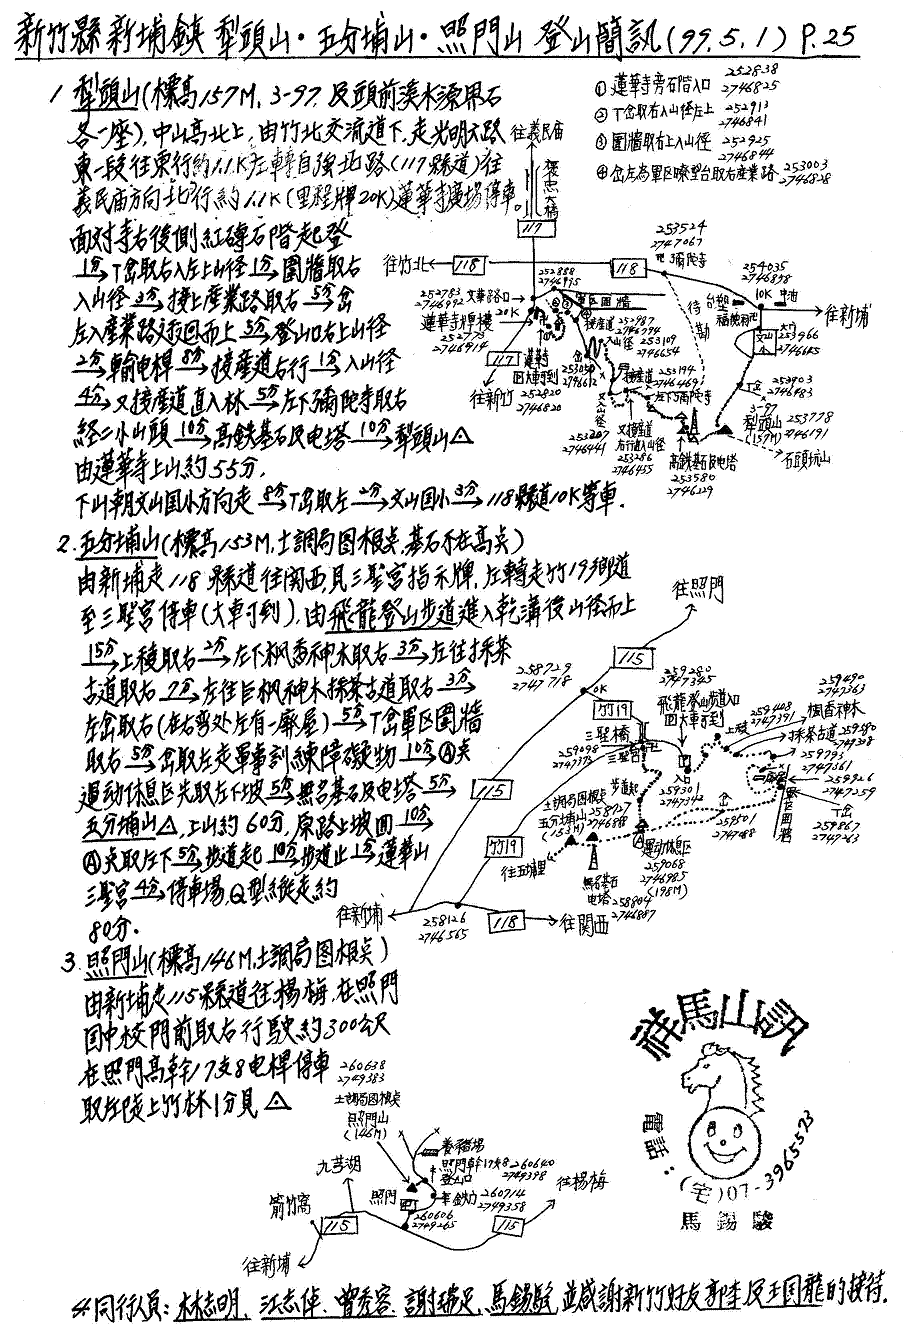 新竹縣新埔鎮犁頭山·五分埔山·照門山登山簡訊(99.5.1) P.25
1. 犁頭山(標高157M, 3-97 及頭前溪水源界石
各一座), 中山高北上, 由竹北交流道下, 走光明六路
東一段往東行約1.1K左轉自強北路(117縣道)往
義民庙方向北行約1.1K(里程牌20K)蓮華寺廣場停車。
面对寺右後側紅磚石階起登
1分→T岔取右入左上山径 1分→圍牆取右
入山径 3分→接上產業路取右 5分→岔
左入產業路迂迴而上 5分→登山口右上山径
2分→輸电桿 8分→接產道右行 1分→入山径
4分→又接產道直入林 5分→左下彌陀寺取右
経二小山頭 10分→高鉄基石及电塔 10分→犁頭山△
由蓮華寺上山約55分.
下山朝文山国小方向走 8分→T岔取左 2分→文山国小 3分→118縣道10K等車.
① 蓮華寺旁石階入口 252838 2746825
② T岔取右入山径左上 252913 2746841
③ 圍牆取右上入山径 252925 2746844
④ 岔左為軍区瞭望台取右產業路 253003 2746828
往義民庙
褒忠大橋
117
往竹北
118
118
253524
2747067
彌陀寺
254035
2746898
10K
往新埔
252888
2746995
軍区圍牆
252783
2746992
20K
蓮華寺牌樓
252773
2746914
117
往新竹
蓮華寺
大車可到
252820
2746820
接產道
252987
2746794
入山径
253109
2746654
253050
2746612
岔
接產道
253194
2746469
左下彌陀寺
又入山径
253207
2746441
又接產道
右行直入山径
253286
2746455
高鉄基石及电塔
253580
2746229
待勘
台塑
福懋
中油
文山国小
大門
253966
2746645
T岔
253903
2746483
3-97
犁頭山
(157M)
253778
2746191
石頭坑山
2. 五分埔山(標高153M, 土調局图根点, 基石不在高点)
由新埔走118縣道往関西, 見三聖宮指示牌, 左轉走竹19鄉道
至三聖宮停車(大車可到), 由飛龍登山步道進入乾溝後山径而上
15分→上稜取右 2分→左下楓香神木取右 3分→左往採茶
古道取右 7分→左往巨枫神木採茶古道取右 3分→
左岔取右(在右弯处左有一廃屋) 5分→T岔軍区圍牆
取右 5分→岔取左走軍事訓練障礙物 10分→Ⓐ点
運动休息区先取左下坡 5分→無名基石及电塔 5分→
五分埔山△, 上山約60分, 原路上坡回 10分→
Ⓐ点取左下 5分→步道起 10分→步道止 1分→蓮華山
三聖宮 4分→停車場, Q型縱走約
80分.
往照門
115
258729
2747718
0K
竹19
三聖橋
259098
2747373
三聖宮
259280
2747345
飛龍登山步道入口
大車可到
入口
259301
2747342
上稜
259408
2747391
259490
2747363
楓香神木
採茶古道
259580
2747328
259793
2747361
259926
2747259
軍区圍牆
T岔
259867
2747263
岔
259501
2747088
步道起
土調局图根点
五分埔山
(153M)
258727
2746811
往五埔里
無名基石
电塔
258804
2746887
Ⓐ
運动休息区
259068
2746985
(198M)
115
竹19
往新埔
258126
2746565
118
往関西
3. 照門山(標高146M, 土調局图根点)
由新埔走115縣道往楊梅, 在照門
国中校門前取右行駛約300公尺
在照門高幹17支8电桿停車
取左陡上竹林1分見△
260638
2749383
土調局图根点
照門山
(146M)
九芎湖
箭竹窩
照門
国中
養豬場
照門幹17支8
登山口
260640
2749398
260714
2749358
260606
2749265
115
115
往楊梅
往新埔
祥馬山訊
電話:(宅)07-3965573
馬錫駿
4. 同行人員: 林志明、江志偉、曾秀容、謝瑞足、馬錫駿 並感謝新竹好友郭李及王国龍的接待.